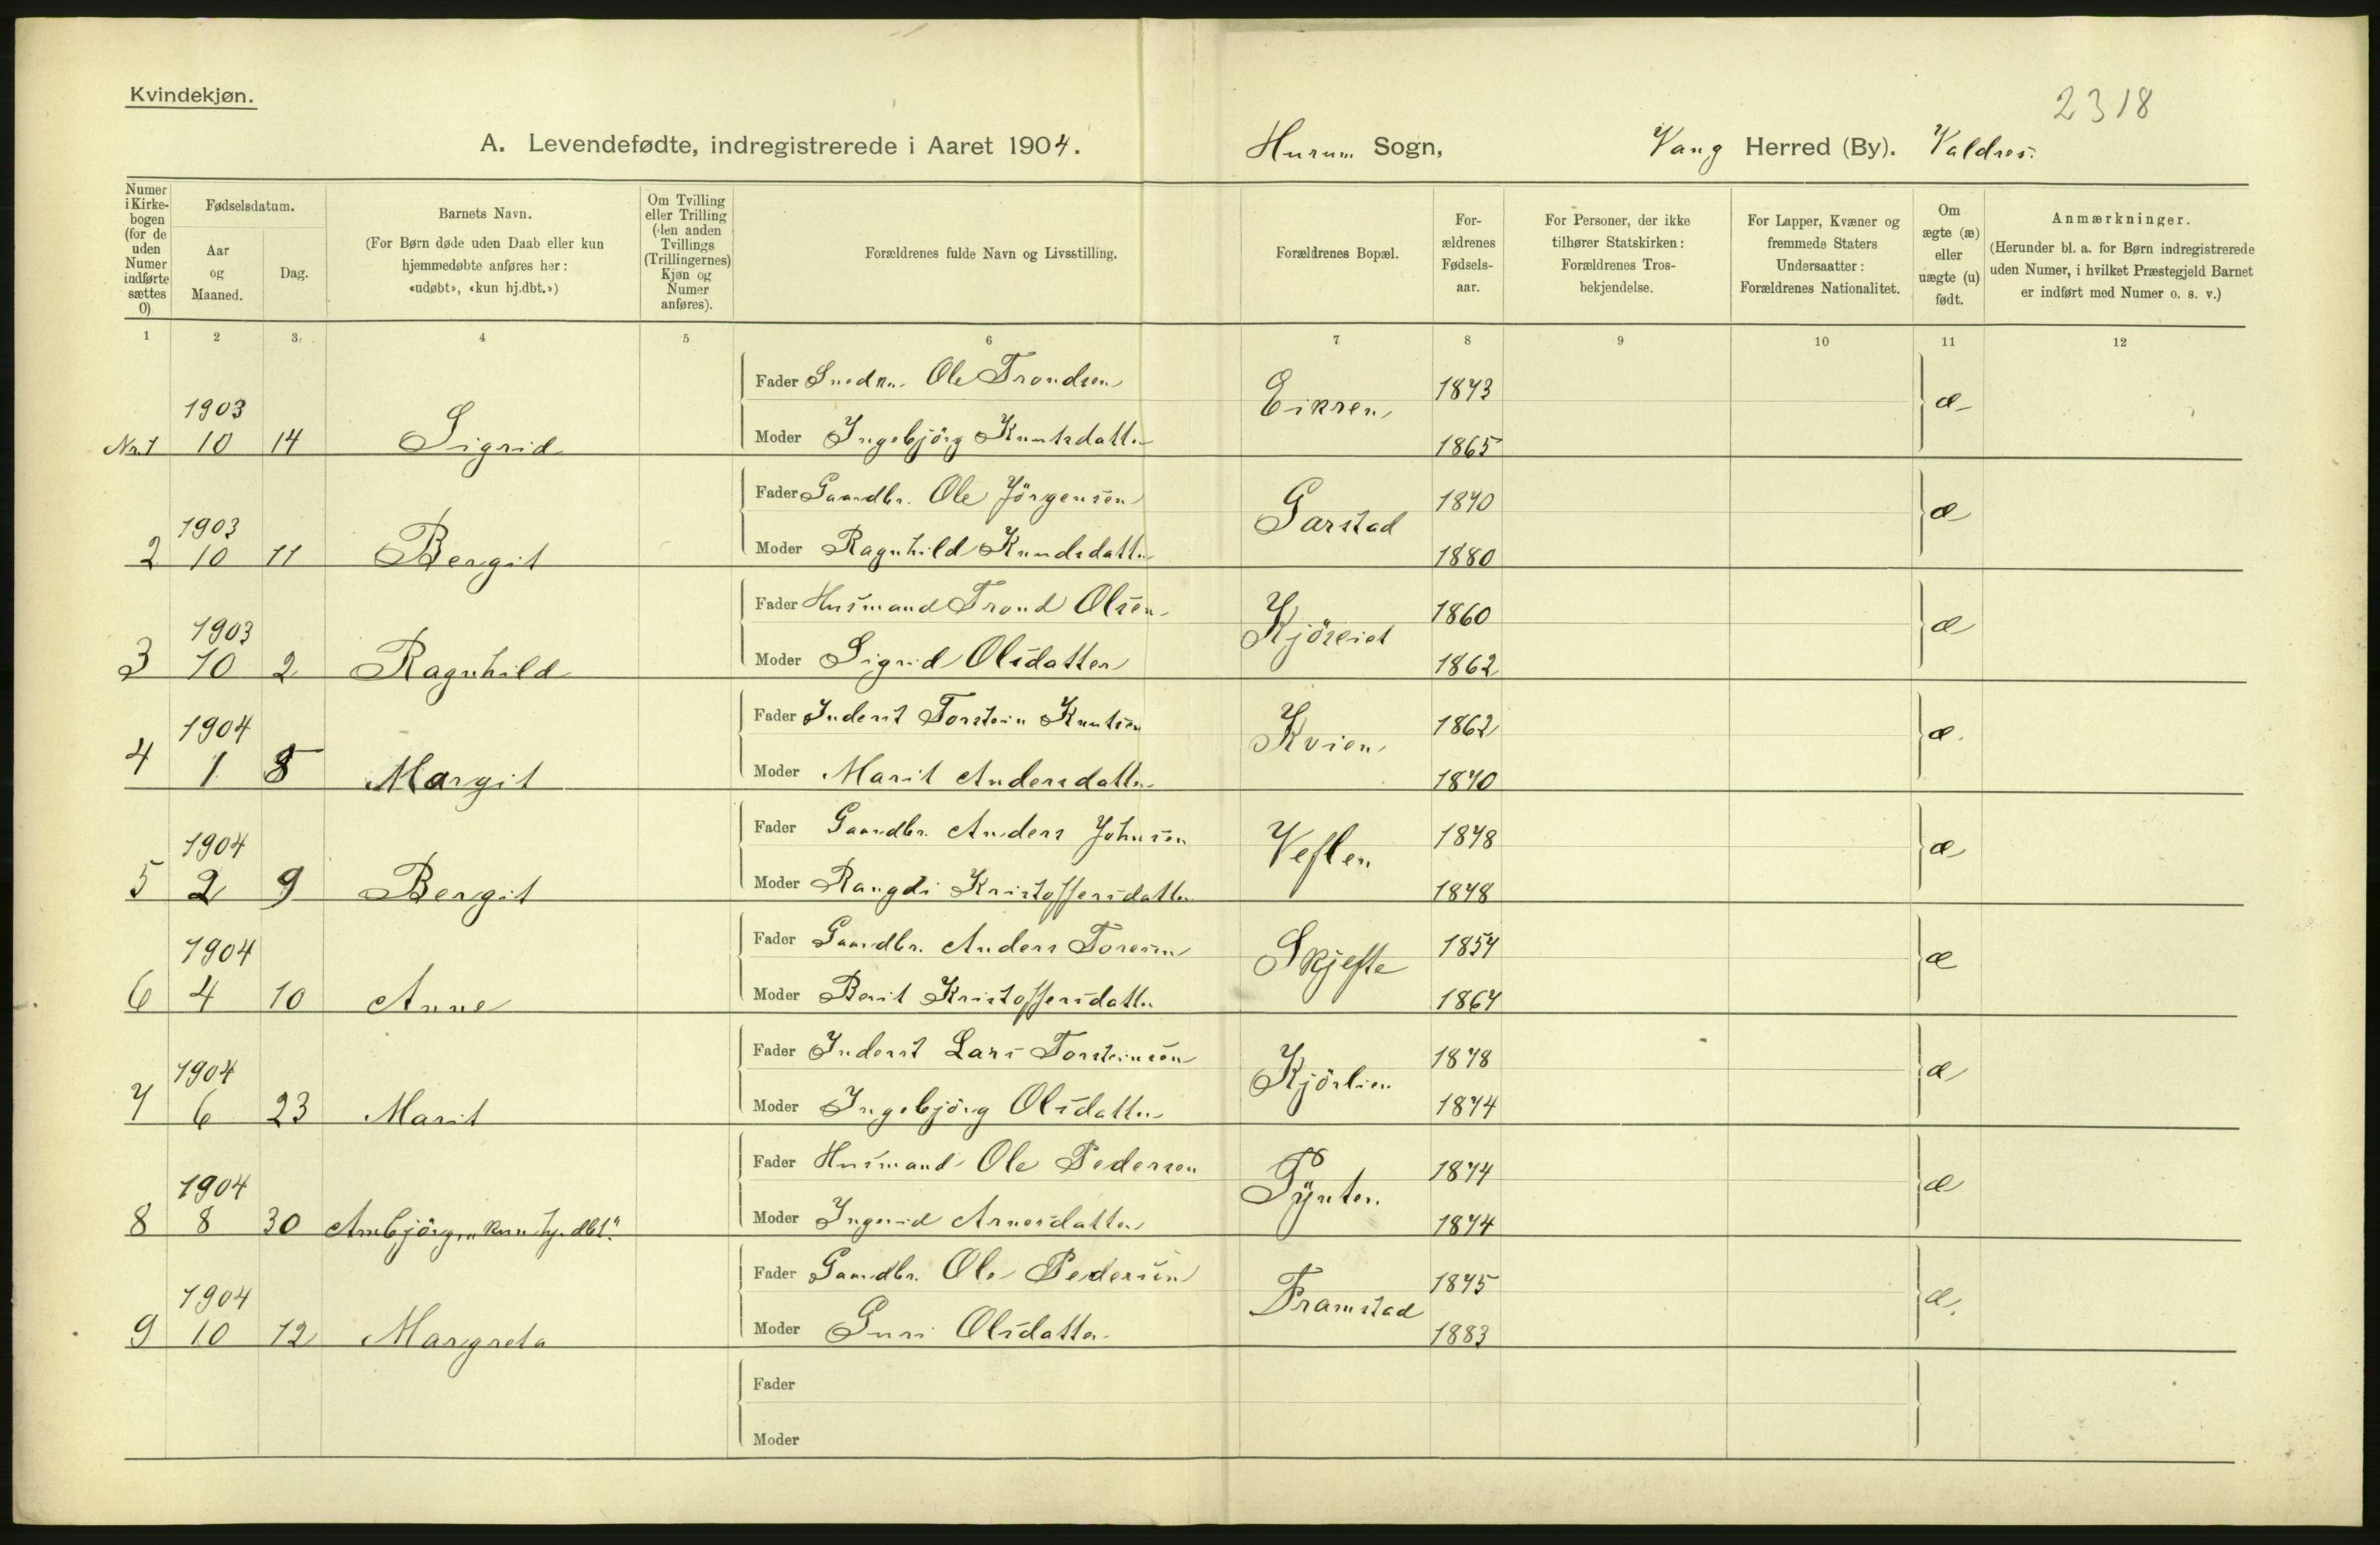 Kvindekjøn.
2318
A. Levendefødte, indregistrerede i Aaret 1904. Hurum Sogn, Vang Herred (By). Valdres.
Numer i Kirkebogen (for de uden Numer indførte sættes 0)
Fødselsdatum.
Aar og Maaned.
Dag.
Barnets Navn.
(For Børn døde uden Daab eller kun
hjemmedøbte anføres her:
«udøbt», «kun hj.dbt.»)
Om Tvilling
eller Trilling
(den anden
Tvillings
(Trillingernes)
Kjøn og
Numer
anføres).
Forældrenes fulde Navn og Livsstilling.
Forældrenes Bopæl.
For-
ældrenes
Fødsels-
aar.
For Personer, der ikke
tilhører Statskirken:
Forældrenes Tros-
bekjendelse.
For Lapper, Kvæner og
fremmede Staters
Undersaatter:
Forældrenes Nationalitet.
Om
ægte (æ)
eller
uægte (u)
født.
Anmærkninger.
(Herunder bl. a. for Børn indregistrerede
uden Numer, i hvilket Præstegjeld Barnet
er indført med Numer o. s. v.)
1 2 3 4 5 6 7 8 9 10 11 12
Fader Ole Trondsen 1873
1903 Eikren æ
Nr. 1 10 14 Sigrid Moder Ingebjörg Knutsdatter 1865
Fader Gaardbr. Ole Jörgensen 1870
1903 Garstad æ
2 10 11 Bergit Moder Ragnhild Knudsdatter 1880
Fader Husmand Trond Olsen 1860
1903 Kjöseiet æ
3 10 2 Ragnhild Moder Sigrid Olsdatter 1862
Fader Inderst Torstein Knutsen 1862
1904 Kvien æ.
4 1 8 Margit Moder Marit Andersdatter 1870
Fader Gaardbr. Anders Johnsen 1878
1904 Veflen æ
5 2 9 Bergit Moder Rangdi Kristoffersdatter 1878
Fader Gaardbr. Anders Toresen 1854
1904 Skjefte æ
6 4 10 Anne Moder Berit Kristoffersdatter 1864
Fader Inderst Lars Torsteinsen 1878
1904 Kjörlien æ
7 6 23 Marit Moder Ingebjörg Olsdatter 1874
Fader Husmand Ole Pedersen 1874
1904 Pynten æ
8 8 30 Ambjörg, "kun hj. dbt." Moder Ingerid Arnesdatter 1874
Fader Gaardbr. Ole Pedersen 1875
1904 Framstad æ.
9 10 12 Margreta Moder Guri Olsdatter 1883
Fader
Moder